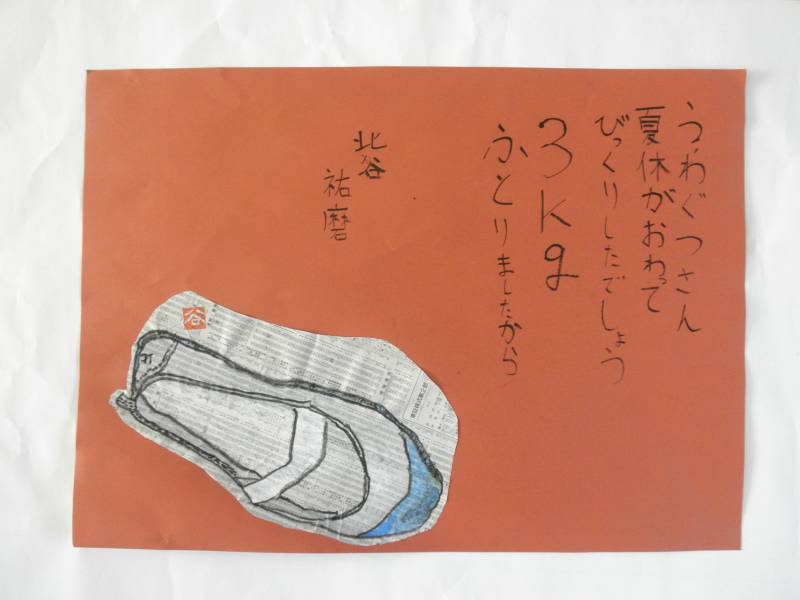 うわぐつさん
夏休がおわって
びっくりしたでしょう
3kg
ふとりましたから
北谷
祐磨
谷